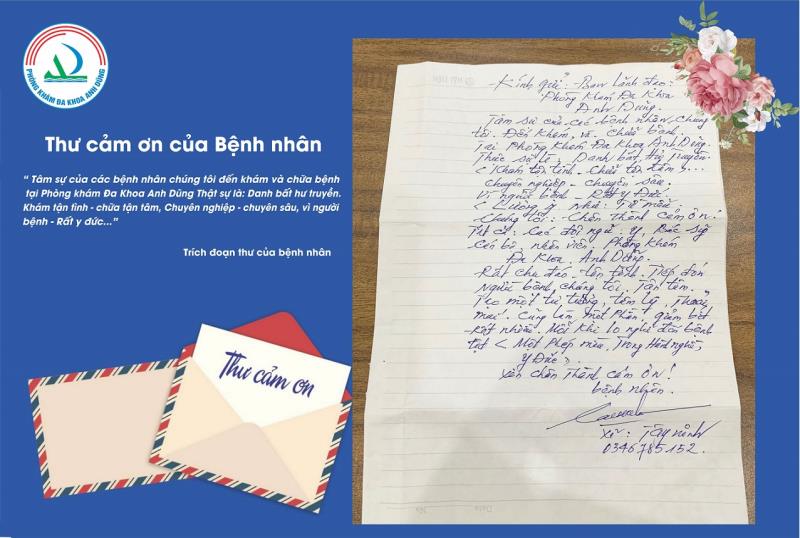 PHÒNG KHÁM ĐA KHOA ANH DŨNG
Thư cảm ơn của Bệnh nhân
“ Tâm sự của các bệnh nhân chúng tôi đến khám và chữa bệnh
tại Phòng khám Đa Khoa Anh Dũng Thật sự là: Danh bất hư truyền.
Khám tận tình - chữa tận tâm, Chuyên nghiệp - chuyên sâu, vì người
bệnh - Rất y đức...”
Trích đoạn thư của bệnh nhân
Thư cảm ơn
Kính gửi: Ban Lãnh đạo:
Phòng Khám Đa Khoa
Anh Dũng.
Tâm sự của các bệnh nhân, chúng
tôi. Đến Khám, và chữa bệnh.
Tại Phòng Khám Đa Khoa Anh Dũng.
Thực sự là, Danh bất Hư Truyền
< Khám tận tình - chữa tận tâm >...
chuyên nghiệp - chuyên sâu.
Vì người bệnh - Rất y Đức.
< Lương y như Từ mẫu
Chúng tôi: - Chân Thành Cảm ơn!
Tất cả: Các đội ngũ: y, Bác sỹ
Cán bộ, nhân viên, Phòng Khám
Đa Khoa, Anh Dũng.
Rất chu đáo - tận tình. Tiếp đón
Người bệnh, chúng tôi, Tận tâm.
Tạo một tư tưởng, tâm lý, Thoải
mái. Cũng làm một Phần, giảm bớt
rất nhiều. Mỗi khi lo nghĩ đến bệnh
tật < Một Phép màu, Trong Hành nghề,
y Đức >.
Xin chân Thành cảm ơn!
bệnh nhân.
Tây ninh
0346785152.